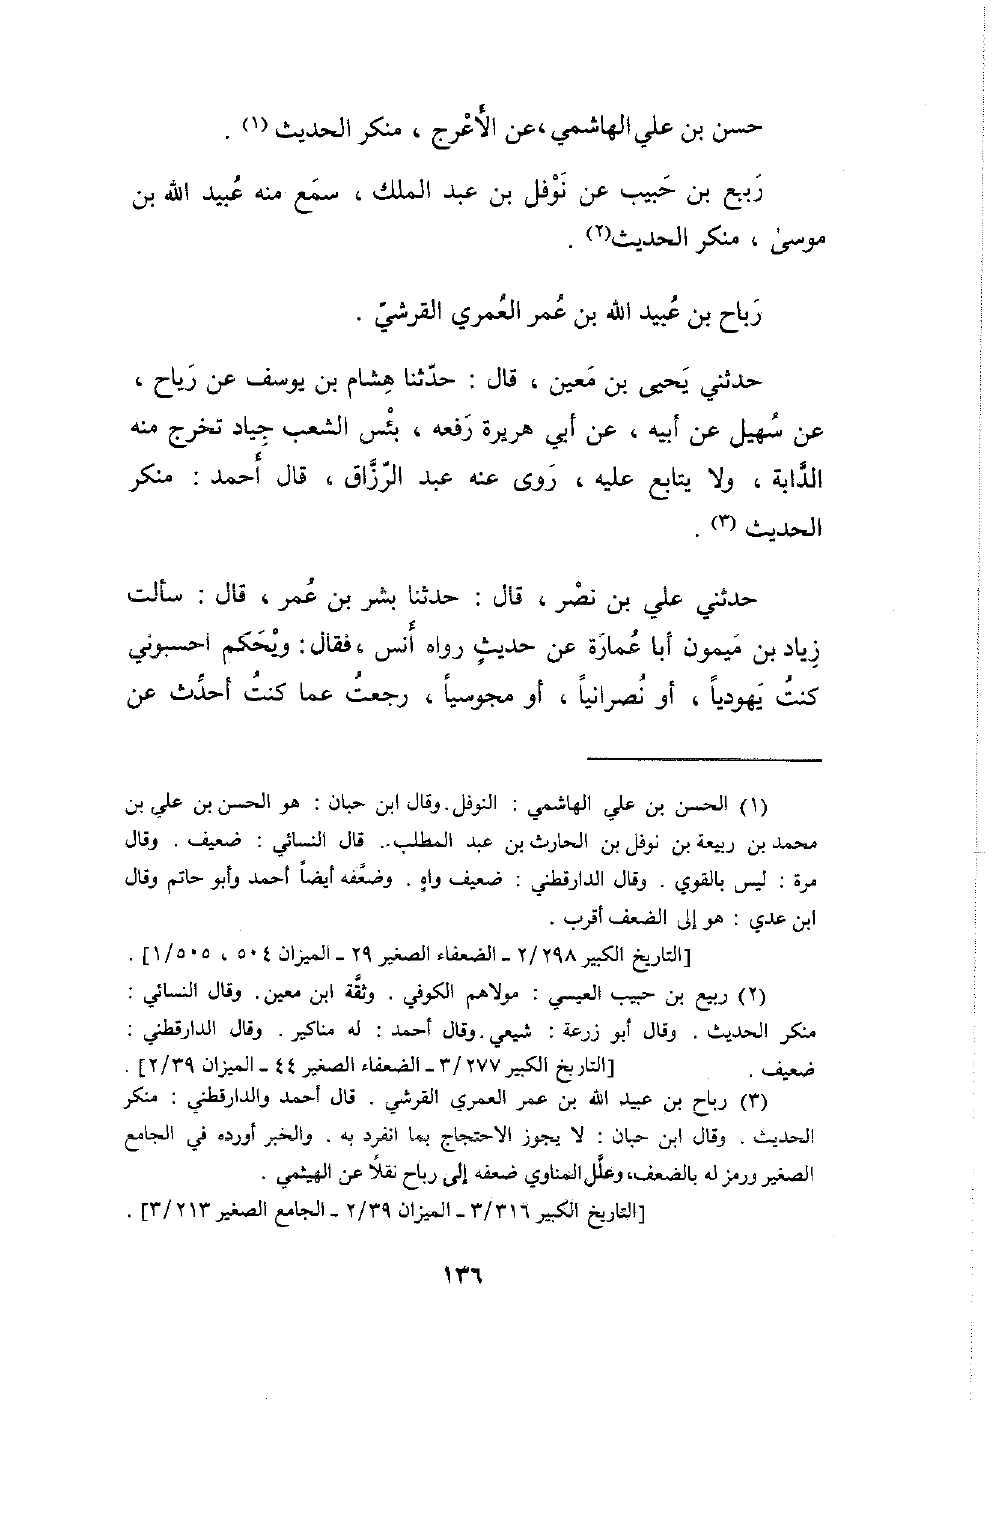 حسن بن علي الهاشمي ،عن الأَعْرج ، منكر الحديث (١) .
رَبيع بن حَبيب عن نَوْفل بن عبد الملك ، سمَع منه عُبيد الله بن
موسىٰ ، منكر الحديث(٢) .
رَباح بن عُبيد الله بن عُمر العُمري القرشيّ .
حدثني يَحيى بن مَعين ، قال : حدّثنا هِشام بن يوسف عن رَياح ،
عن سُهيل عن أبيه ، عن أبي هريرة رَفعه ، بئْس الشعب جِياد تخرج منه
الدَّابة ، ولا يتابع عليه ، رَوى عنه عبد الرّزَّاق ، قال أَحمد : منكر
الحديث (٣) .
حدثني علي بن نصْر ، قال : حدثنا بشر بن عُمر ، قال : سألت
زِياد بن مَيمون أبا عُمارَة عن حديثٍ رواه أَنس ، فقال : ويْحَكم احسبوني
كنتُ يَهودياً ، أو نُصرانياً ، أو مجوسياً ، رجعتُ عما كنتُ أحدِّث عن
(١) الحسن بن علي الهاشمي : النوفل . وقال ابن حبان : هو الحسن بن علي بن
محمد بن ربيعة بن نوفل بن الحارث بن عبد المطلب.. قال النسائي : ضعيف . وقال
مرة : ليس بالقوي . وقال الدارقطني : ضعيف واهٍ . وضعَّفه أيضاً أحمد وأبو حاتم وقال
ابن عدي : هو إلى الضعف أقرب .
[التاريخ الكبير ٢/٢٩٨ - الضعفاء الصغير ٢٩ - الميزان ٥٠٤ ، ١/٥٠٥] .
(٢) ربيع بن حبيب العيسي : مولاهم الكوفي . وثقَّة ابن معين . وقال النسائي :
منكر الحديث . وقال أبو زرعة : شيعي . وقال أحمد : له مناكير . وقال الدارقطني :
ضعيف . [التاريخ الكبير ٣/٢٧٧ - الضعفاء الصغير ٤٤ - الميزان ٢/٣٩] .
(٣) رباح بن عبيد الله بن عمر العمري القرشي . قال أحمد والدارقطني : منكر
الحديث . وقال ابن حبان : لا يجوز الاحتجاج بما انفرد به . والخبر أورده في الجامع
الصغير ورمز له بالضعف، وعلَّل المناوي ضعفه إلى رباح نقلاً عن الهيثمي .
[التاريخ الكبير ٣/٣١٦ - الميزان ٢/٣٩ - الجامع الصغير ٣/٢١٣] .
١٣٦